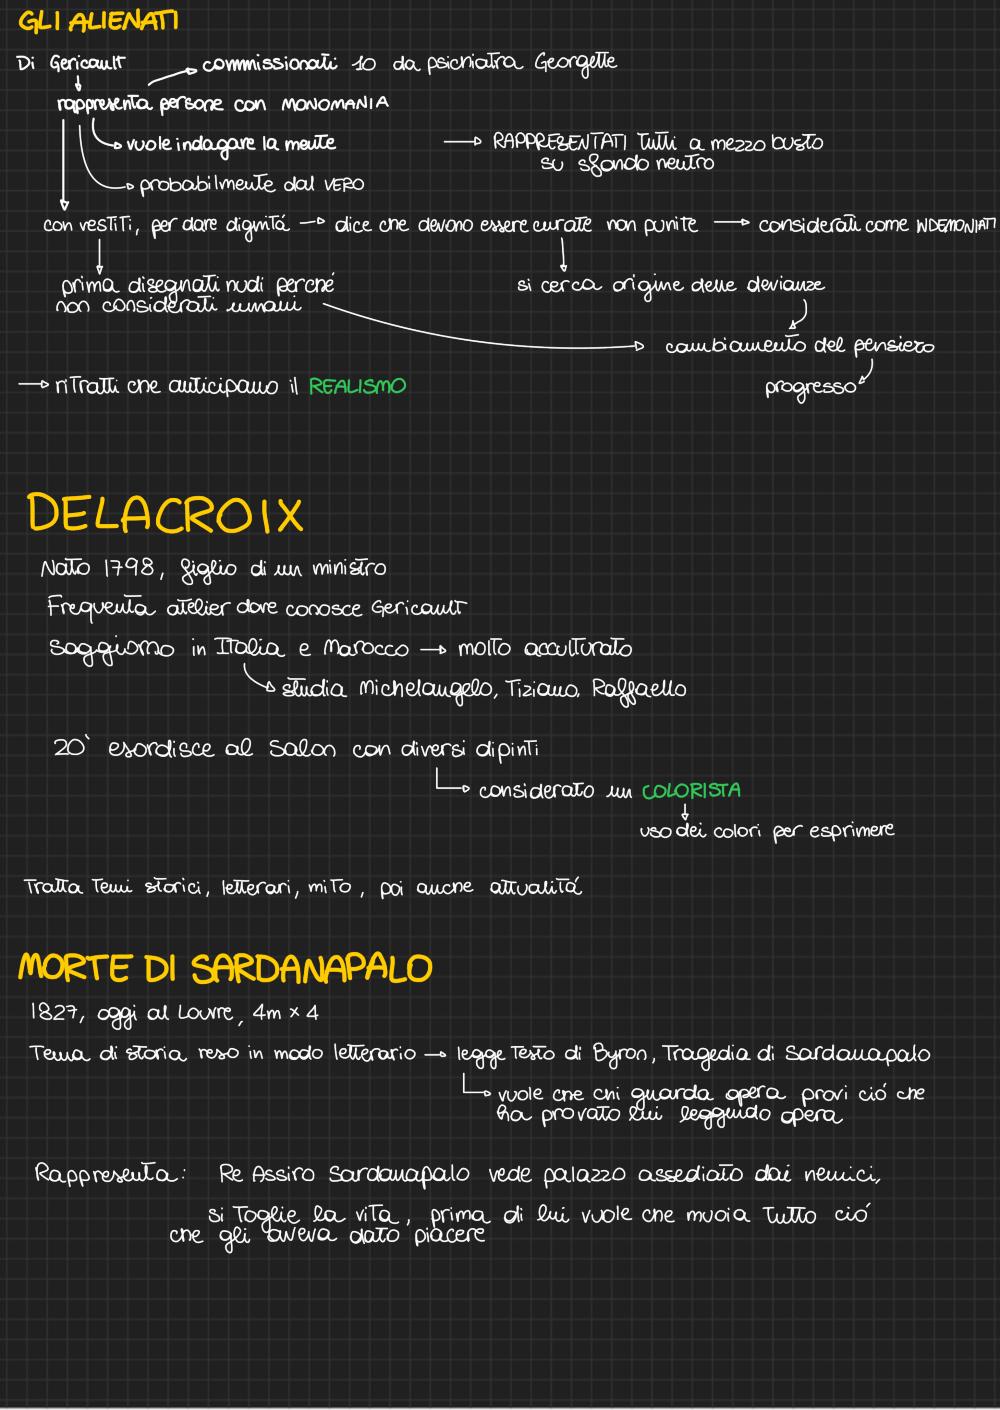 GLI ALIENATI
Di Gericault
commissionati 10 da psichiatra Georgette
rappresenta persone con MONOMANIA
vuole indagare la mente
RAPPRESENTATI tutti a mezzo busto
su sfondo neutro
probabilmente dal VERO
con vestiti, per dare dignitá → dice che devono essere curate non punite → considerati come INDEMONIATI
prima disegnati nudi perché
non considerati umani
si cerca origine delle devianze
cambiamento del pensiero
progresso
→ ritratti che anticipano il REALISMO
DELACROIX
Nato 1798, figlio di un ministro
Frequenta atelier dove conosce Gericault
Soggiorno in Italia e Marocco → molto acculturato
studia Michelangelo, Tiziano, Raffaello
20` esordisce al Salon con diversi dipinti
considerato un COLORISTA
uso dei colori per esprimere
Tratta temi storici, letterari, mito, poi anche attualitá
MORTE DI SARDANAPALO
1827, oggi al Louvre, 4m x 4
Tema di storia reso in modo letterario → legge testo di Byron, Tragedia di Sardanapalo
vuole che chi guarda opera provi ció che
ha provato lui leggendo opera
Rappresenta: Re Assiro Sardanapalo vede palazzo assediato dai nemici,
si toglie la vita, prima di lui vuole che muoia tutto ció
che gli aveva dato piacere